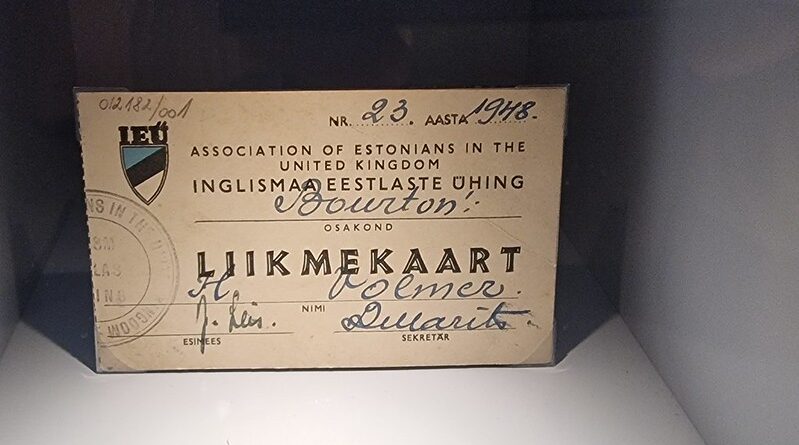 012182/001
NR. 23. AASTA 1948.
IEÜ
ASSOCIATION OF ESTONIANS IN THE
UNITED KINGDOM
INGLISMAA EESTLASTE ÜHING
Bourton'i
OSAKOND
LIIKMEKAART
H Volmer.
NIMI
J. Leis.
ESIMEES
SEKRETÄR
NS IN THE
NGDOM